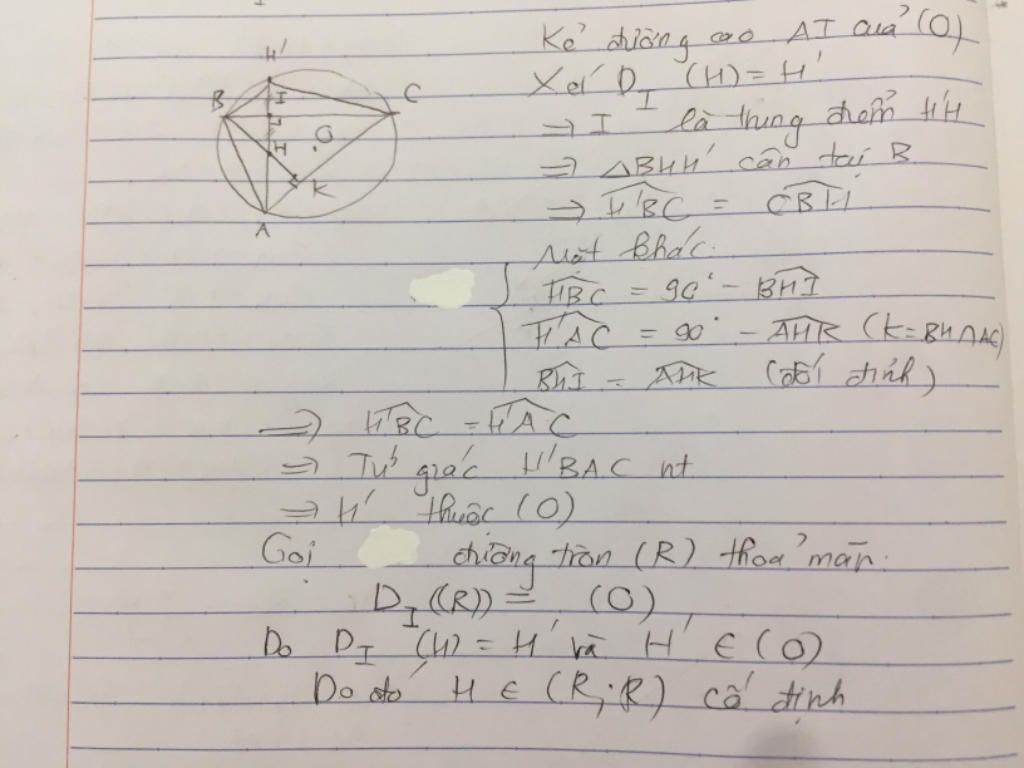 H'
B
I
C
H
O
K
A
Kẻ đường cao AI của (O)
Xét D_I (H) = H'
⇒ I là trung điểm H'H
⇒ △BHH' cân tại B
⇒ H'BC = CBH
Mặt khác:
HBC = 90° - BHI
H'AC = 90° - AHK (K = BH ∩ AC)
BHI = AHK (đối đỉnh)
⇒ H'BC = H'AC
⇒ Tứ giác H'BAC nt
⇒ H' thuộc (O)
Gọi đường tròn (R) thoả mãn:
D_I ((R)) = (O)
Do D_I (H) = H' và H' ∈ (O)
Do đó H ∈ (R; R) cố định